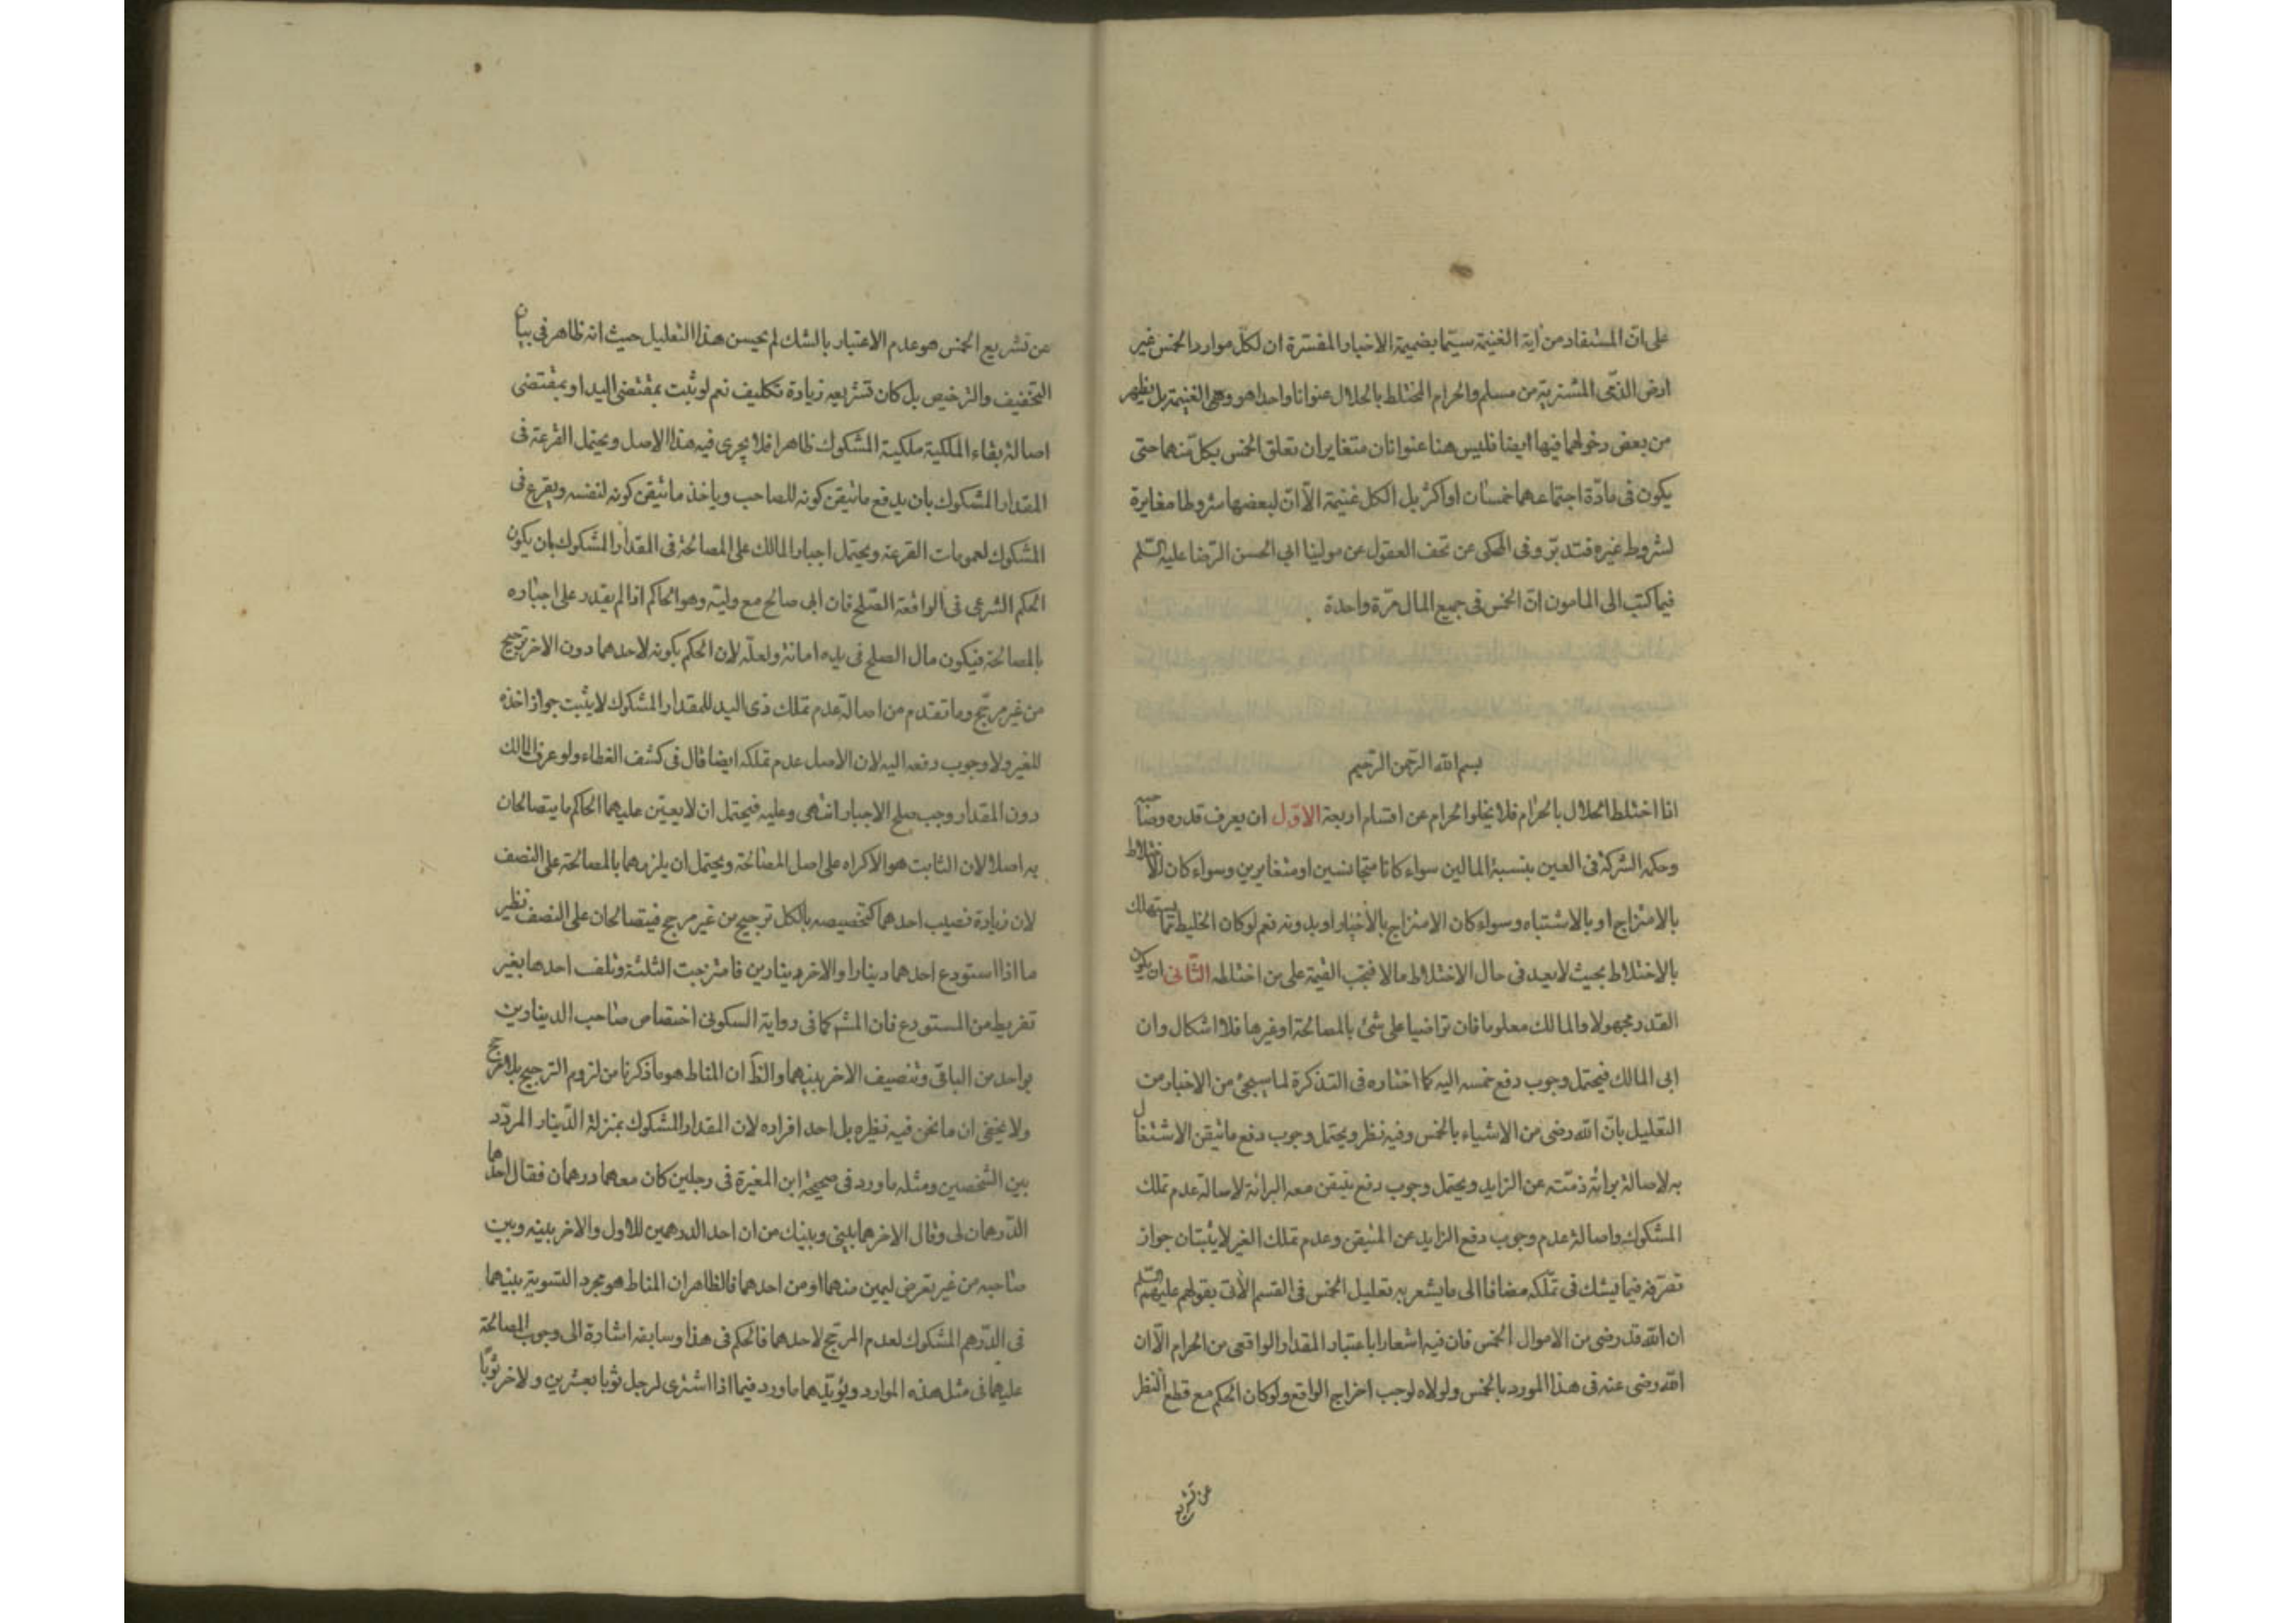 على انّ المستفاد من اٰية الغنيمة سيّما بضميمة الاخبار المفسّرة ان لكلّ موارد الخمس غير
ارض الذمّى المشتريةِ من مسلم والحرام المختلط بالحلال عنوانا واحدا هو وهى الغنيمة بل يظهر
من بعض دخولهما فيها ايضا فليس هنا عنوانان متغايران تعلق الخمس بكل منهما حتى
يكون فى مادّة اجتماعهما خمسان او اكثر بل الكل غنيمة الّا انّ لبعضها شروطا مغايرة
لشروط غيره فتدبّر وفى المحكى عن تحف العقول عن مولينا ابى الحسن الرّضا عليه السّلم
فيما كتب الى المامون انّ الخمس فى جميع المال مرّة واحدة
بسم الله الرّحمن الرّحيم
اذا اختلط الحلال بالحرام فلا يخلوا الحرام عن اقسام اربعة الاوّل ان يعرف قدره وصاحبه
وحكمه الشركة فى العين بنسبة المالين سواء كانا متجانسين او متغايرين وسواء كان الاختلاط
بالامتزاج او بالاشتباه وسواء كان الامتزاج بالأختيار او بدونه نعم لو كان الخليط مما يستهلك
بالاختلاط بحيث لا يعد فى حال الاختلاط مالا فيجب القيمة على من اختلطه الثّانى ان يكون
القدر مجهولا والمالك معلوما فان تراضيا على شئ بالمصالحة او غيرها فلا اشكال وان
ابى المالك فيحتمل وجوب دفع خمسه اليه كما اختاره فى التذكرة لما سيجئ من الاخبار من
التعليل بانّ الله رضى من الاشياء بالخمس وفيه نظر ويحتمل وجوب دفع ما تيقن الاشتغال
به لاصالة برائة ذمّته عن الزايد ويحتمل وجوب دفع يتيقن معه البرائة لاصالة عدم تملك
المشكوك واصالة عدم وجوب دفع الزايد عن المتيقن وعدم تملك الغير لا يثبتان جواز
تصرّفه فيما يشك فى تملّكه مضافا الى ما يشعر به تعليل الخمس فى القسم الأتى بقولهم عليهم السّلم
ان الله قد رضى من الاموال الخمس فان فيه اشعارا باعتبار المقدار الواقعى من الحرام الّا ان
الله رضى عنه فى هذا المورد بالخمس ولولاه لوجب اخراج الواقع ولو كان الحكم مع قطع النظر
عن تشريع
عن تشريع الخمس هو عدم الاعتبار بالشك لم يحسن هذا التعليل حيث انه ظاهر فى بيان
التخفيف والترخيص بل كان تشريعه زيادة تكليف نعم لو ثبت بمقتضى اليد او بمقتضى
اصالة بقاء الملكية ملكية المشكوك ظاهرا فلا يجرى فيه هذا الاصل ويحتمل القرعة فى
المقدار المشكوك بان يدفع ما تيقن كونه للصاحب وياخذ ما تيقن كونه لنفسه ويقرع فى
المشكوك لعمومات القرعة ويحتمل اجبار المالك على المصالحة فى المقدار المشكوك بان يكون
الحكم الشرعى فى الواقعة الصّلح فان ابى صالح مع وليّه وهو الحاكم اذا لم يقدر على اجباره
بالمصالحة فيكون مال الصلح فى يده امانة ولعلّه لان الحكم بكونه لاحدهما دون الاخر ترجيح
من غير مرجّح وما تقدم من اصالة عدم تملك ذى اليد للمقدار المشكوك لا يثبت جواز اخذه
للغير ولا وجوب دفعه اليه لان الاصل عدم تملكه ايضا قال فى كشف الغطاء ولو عرف المالك
دون المقدار وجب صلح الاجبار انتهى وعليه فيحتمل ان لا يعيّن عليهما الحاكم ما يتصالحان
به اصلا لان الثابت هو الاكراه على اصل المصالحة ويحتمل ان يلزمهما بالمصالحة على النصف
لان زيادة نصيب احدهما كتخصيصه بالكل ترجيح من غير مرجح فيتصالحان على النصف نظير
ما اذا استودع احدهما دينارا والاخر دينارين فامتزجت الثلثة وتلف احدها بغير
تفريط من المستودع فان المشه كما فى رواية السكونى اختصاص صاحب الدينارين
بواحد من الباقى وتنصيف الاخر بينهما والظّ ان المناط هو ما ذكرنا من لزوم الترجيح بلا مرجح
ولا يخفى ان ما نحن فيه نظيره بل احد افراده لان المقدار المشكوك بمنزلة الدّينار المردّد
بين الشخصين ومثله ما ورد فى صحيحة ابن المغيرة فى رجلين كان معهما درهمان فقال احدهما
الدّرهمان لى وقال الاخر هما بينى وبينك من ان احد الدرهمين للاول والاخر بينه وبين
صاحبه من غير تعرض ليمين منهما او من احدهما فالظاهر ان المناط هو مجرد التسوية بينهما
فى الدّرهم المشكوك لعدم المرجّح لاحدهما فالحكم فى هذا وسابقه اشارة الى وجوب المصالحة
عليهما فى مثل هذه الموارد ويؤيّدهما ما ورد فيما اذا اشترى لرجل ثوبا بعشرين ولاخر ثوبًا